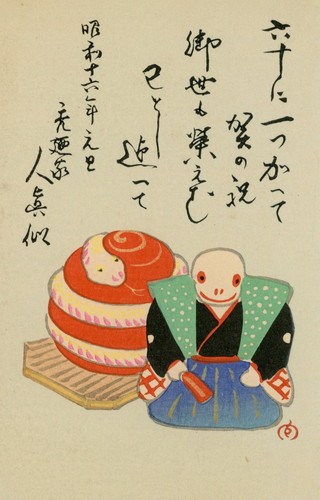 六十に一つかつて
賀の祝
御世も榮えむ
巳とし
迎へて
昭和十六年元旦
禿廼家
人眞似